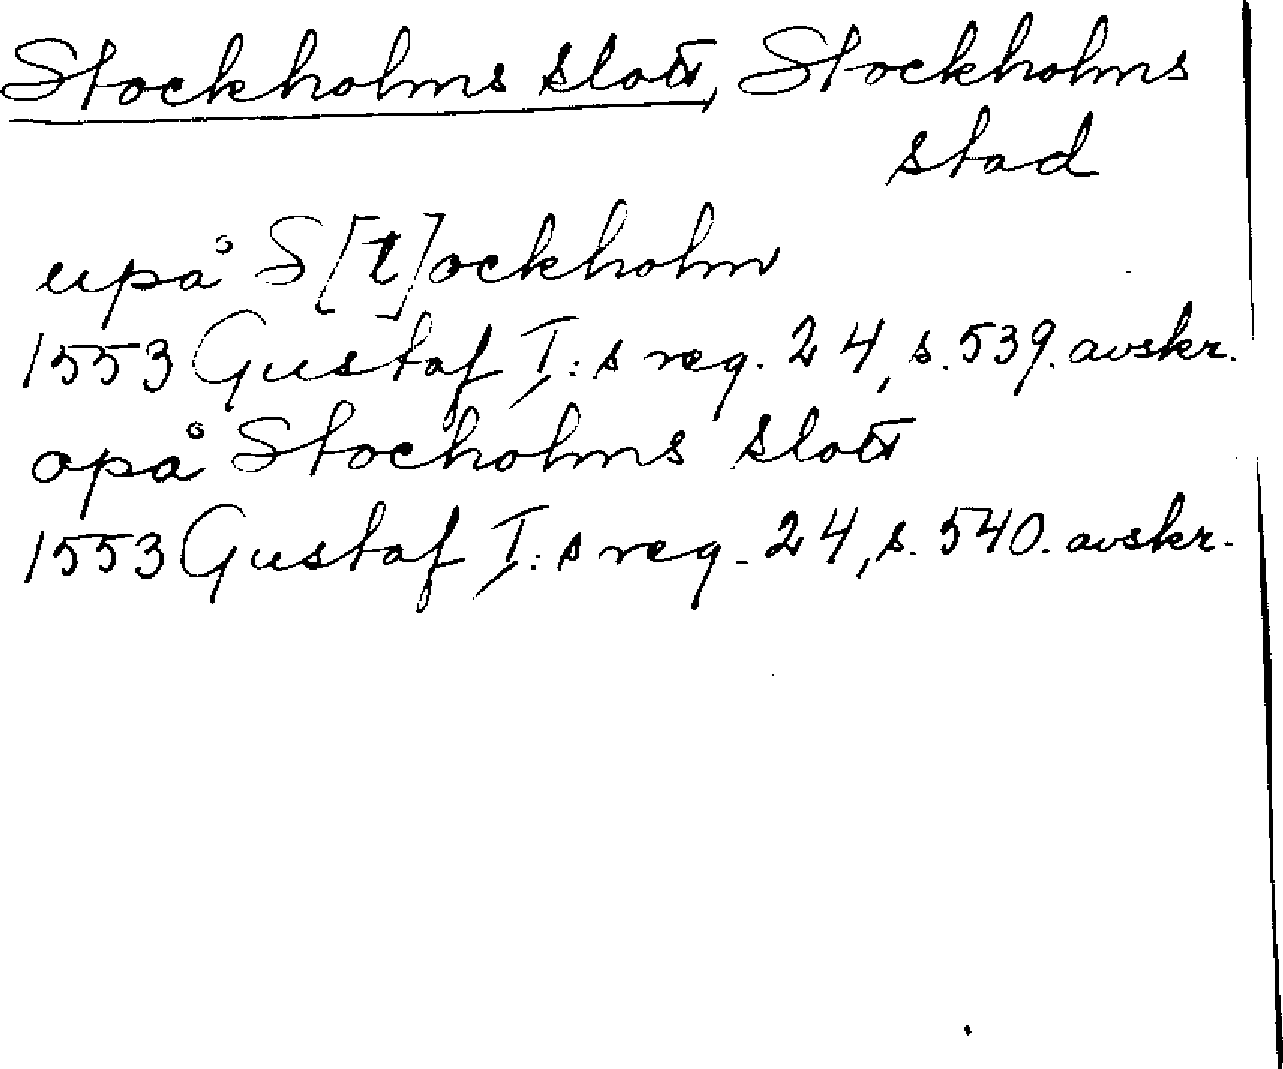 Stockholms slott, Stockholms
stad
upå S[t]ockholm
1553 Gustaf I:s reg. 24, s. 539. avskr.
opå Stocholms slott
1553 Gustaf I:s reg. 24, s. 540. avskr.